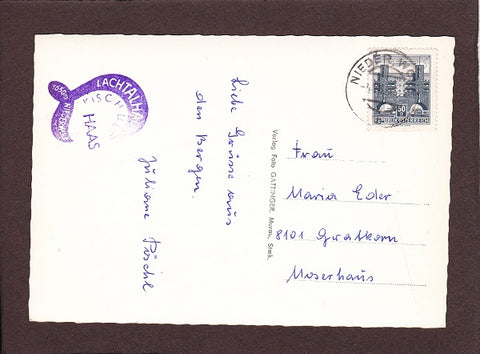 LACHTALHAUS
HAAS
Liebe Grüsse aus
den Bergen.
Juliane Pöschl
Verlag Foto GATTINGER, Murau, Stmk.
NIEDER
50
REPUBLIK ÖSTERREICH
Frau
Maria Eder
8101 Gratkorn
Moserhaus